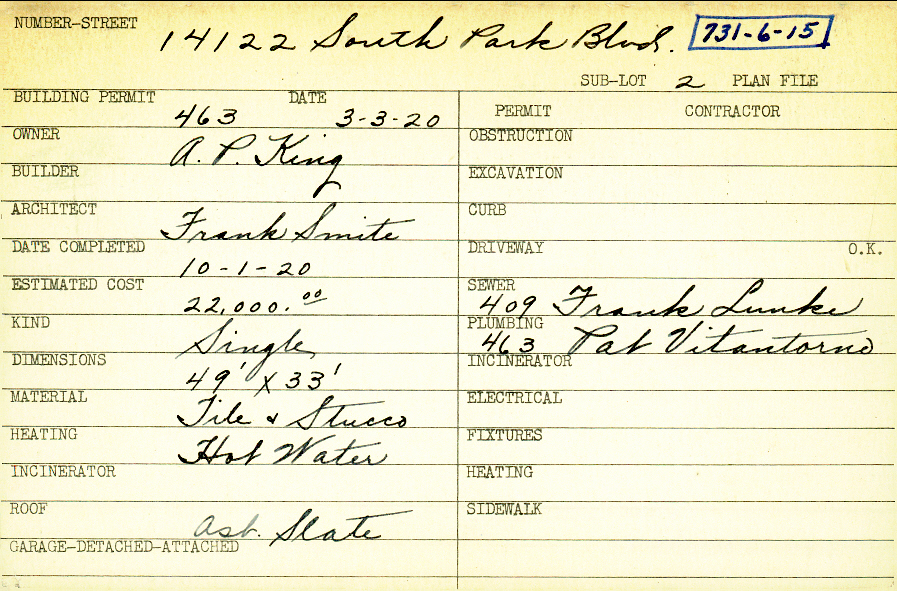 NUMBER-STREET 14122 South Park Blvd. 731-6-15
SUB-LOT 2 PLAN FILE
BUILDING PERMIT 463 DATE 3-3-20
OWNER A. P. King
BUILDER
ARCHITECT Frank Smite
DATE COMPLETED 10-1-20
ESTIMATED COST 22,000.00
KIND Single
DIMENSIONS 49' X 33'
MATERIAL Tile & Stucco
HEATING Hot Water
INCINERATOR
ROOF Asb. Slate
GARAGE-DETACHED-ATTACHED
PERMIT CONTRACTOR
OBSTRUCTION
EXCAVATION
CURB
DRIVEWAY O.K.
SEWER 409 Frank Lunke
PLUMBING 463 Pat Vitantorno
INCINERATOR
ELECTRICAL
FIXTURES
HEATING
SIDEWALK